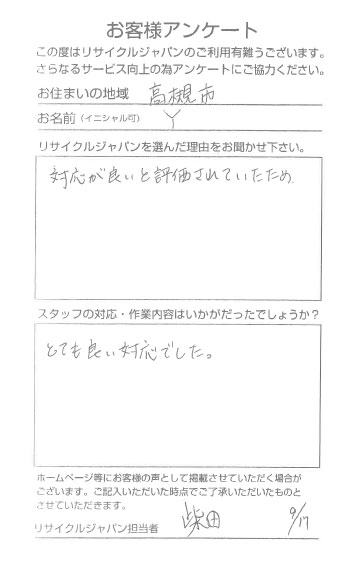 お客様アンケート
この度はリサイクルジャパンのご利用有難うございます。
さらなるサービス向上の為アンケートにご協力ください。
お住まいの地域 高槻市
お名前(イニシャル可) Y
リサイクルジャパンを選んだ理由をお聞かせ下さい。
対応が良いと評価されていたため
スタッフの対応・作業内容はいかがだったでしょうか?
とても良い対応でした。
ホームページ等にお客様の声として掲載させていただく場合が
ございます。ご記入いただいた時点でご了承いただいたものと
させていただきます。
リサイクルジャパン担当者 柴田 9/17